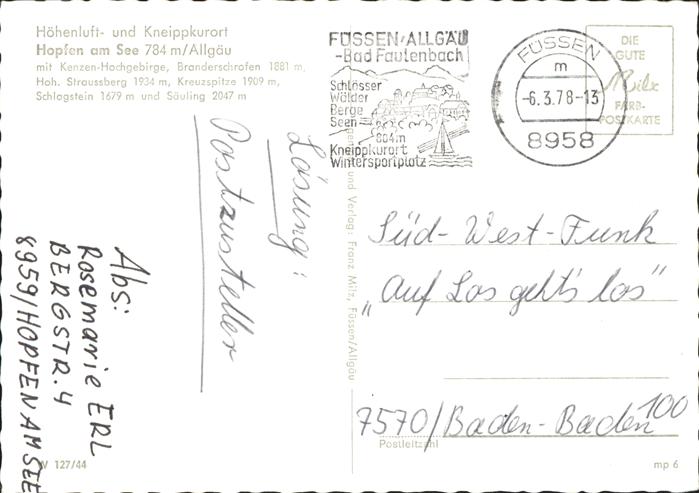 Höhenluft- und Kneippkurort
Hopfen am See 784 m/Allgäu
mit Kenzen-Hochgebirge, Branderschrofen 1881 m,
Hoh. Straussberg 1934 m, Kreuzspitze 1909 m,
Schlagstein 1679 m und Säuling 2047 m
FÜSSEN/ALLGÄU
-Bad Faulenbach
Schlösser
Wälder
Berge
Seen
804m
Kneippkurort
Wintersportplatz
FÜSSEN
m
-6.3.78-13
8958
DIE
GUTE
Milz
FARB-
POSTKARTE
Lösung:
Postzusteller
Abs:
Rosemarie ERL
BERGSTR. 4
8959/HOPFEN AM SEE
und Verlag: Franz Milz, Füssen/Allgäu
Süd-West-Funk
„Auf Los geht's los"
7570/Baden-Baden 100
Postleitzahl
127/44
mp 6